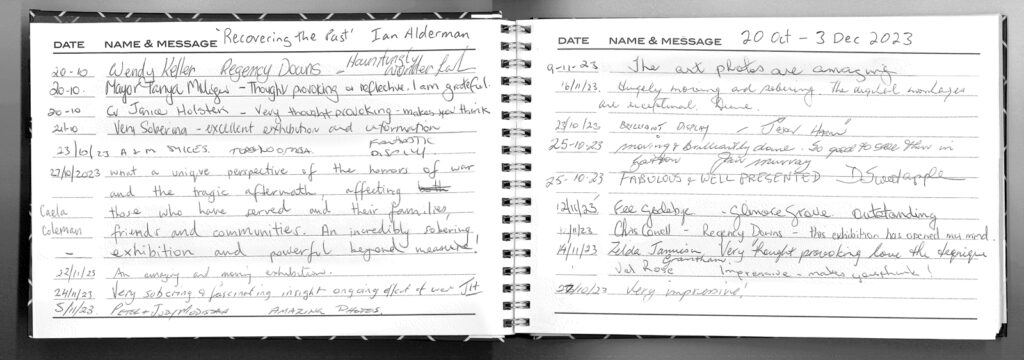 DATE NAME & MESSAGE 'Recovering the Past' Ian Alderman
20-10 Wendy Keller Regency Downs - Hauntingly wonderful
20-10. Mayor Tanya Milligan - Thought provoking & reflective. I am grateful.
20-10 Cr Janice Holstein - Very thought provoking - makes you think
21-10 Very Sobering - excellent exhibition and information
23/10/23 A & M TOOWOOMBA. FANTASTIC DISPLAY
22/10/2023 what a unique perspective of the horrors of war
and the tragic aftermath, affecting both
Carla those who have served and their families,
Coleman friends and communities. An incredibly sobering
- exhibition and powerful beyond measure!
22/11/23 An amazing and moving exhibition.
24/11/23 Very sobering & fascinating insight ongoing effect of war
5/11/23 PETER & JUDY AMAZING PHOTOS.
DATE NAME & MESSAGE 20 Oct - 3 Dec 2023
9-11-23 The art photos are amazing
16/11/23. Hugely moving and sobering. The digital montages
are exceptional.
23/10/23 BRILLIANT DISPLAY -
25-10-23 moving & brilliantly done. So good to see them in
Gatton Murray
25-10.23 FABULOUS & WELL PRESENTED
12/11/23 Fee Godebye - Glenore Grove. Outstanding
11/11/23 Chris Cowell - Regency Downs - this exhibition has opened my mind.
19/11/23 Zelda Very thought provoking love the technique
Grantham.
Val Rose Impressive - makes you think!
22/10/23 Very impressive!